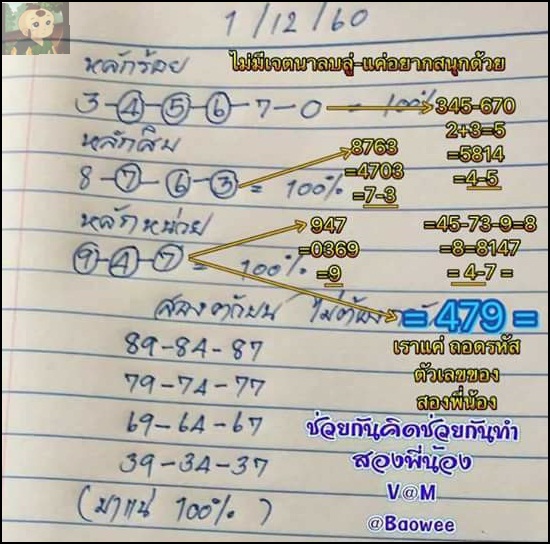 1/12/60
หลักร้อย
ไม่มีเจตนาลบลู่-แค่อยากสนุกด้วย
3-4-5-6-7-0 = 100% 345-670
2+3=5
=5814
=4-5
หลักสิบ
8-7-6-3 = 100%
8763
=4703
=7-3
หลักหน่วย
9-4-7 = 100%
947
=0369
=9
=45-73-9=8
=8=8147
=4-7=
สองตัวบน ไม่ต้อง
= 479 =
89-84-87
79-74-77
69-64-67
39-34-37
(มาแน่ 100%)
เราแค่ ถอดรหัส
ตัวเลขของ
สองพี่น้อง
ช่วยกันคิดช่วยกันทำ
สองพี่น้อง
V@M
@Baowee